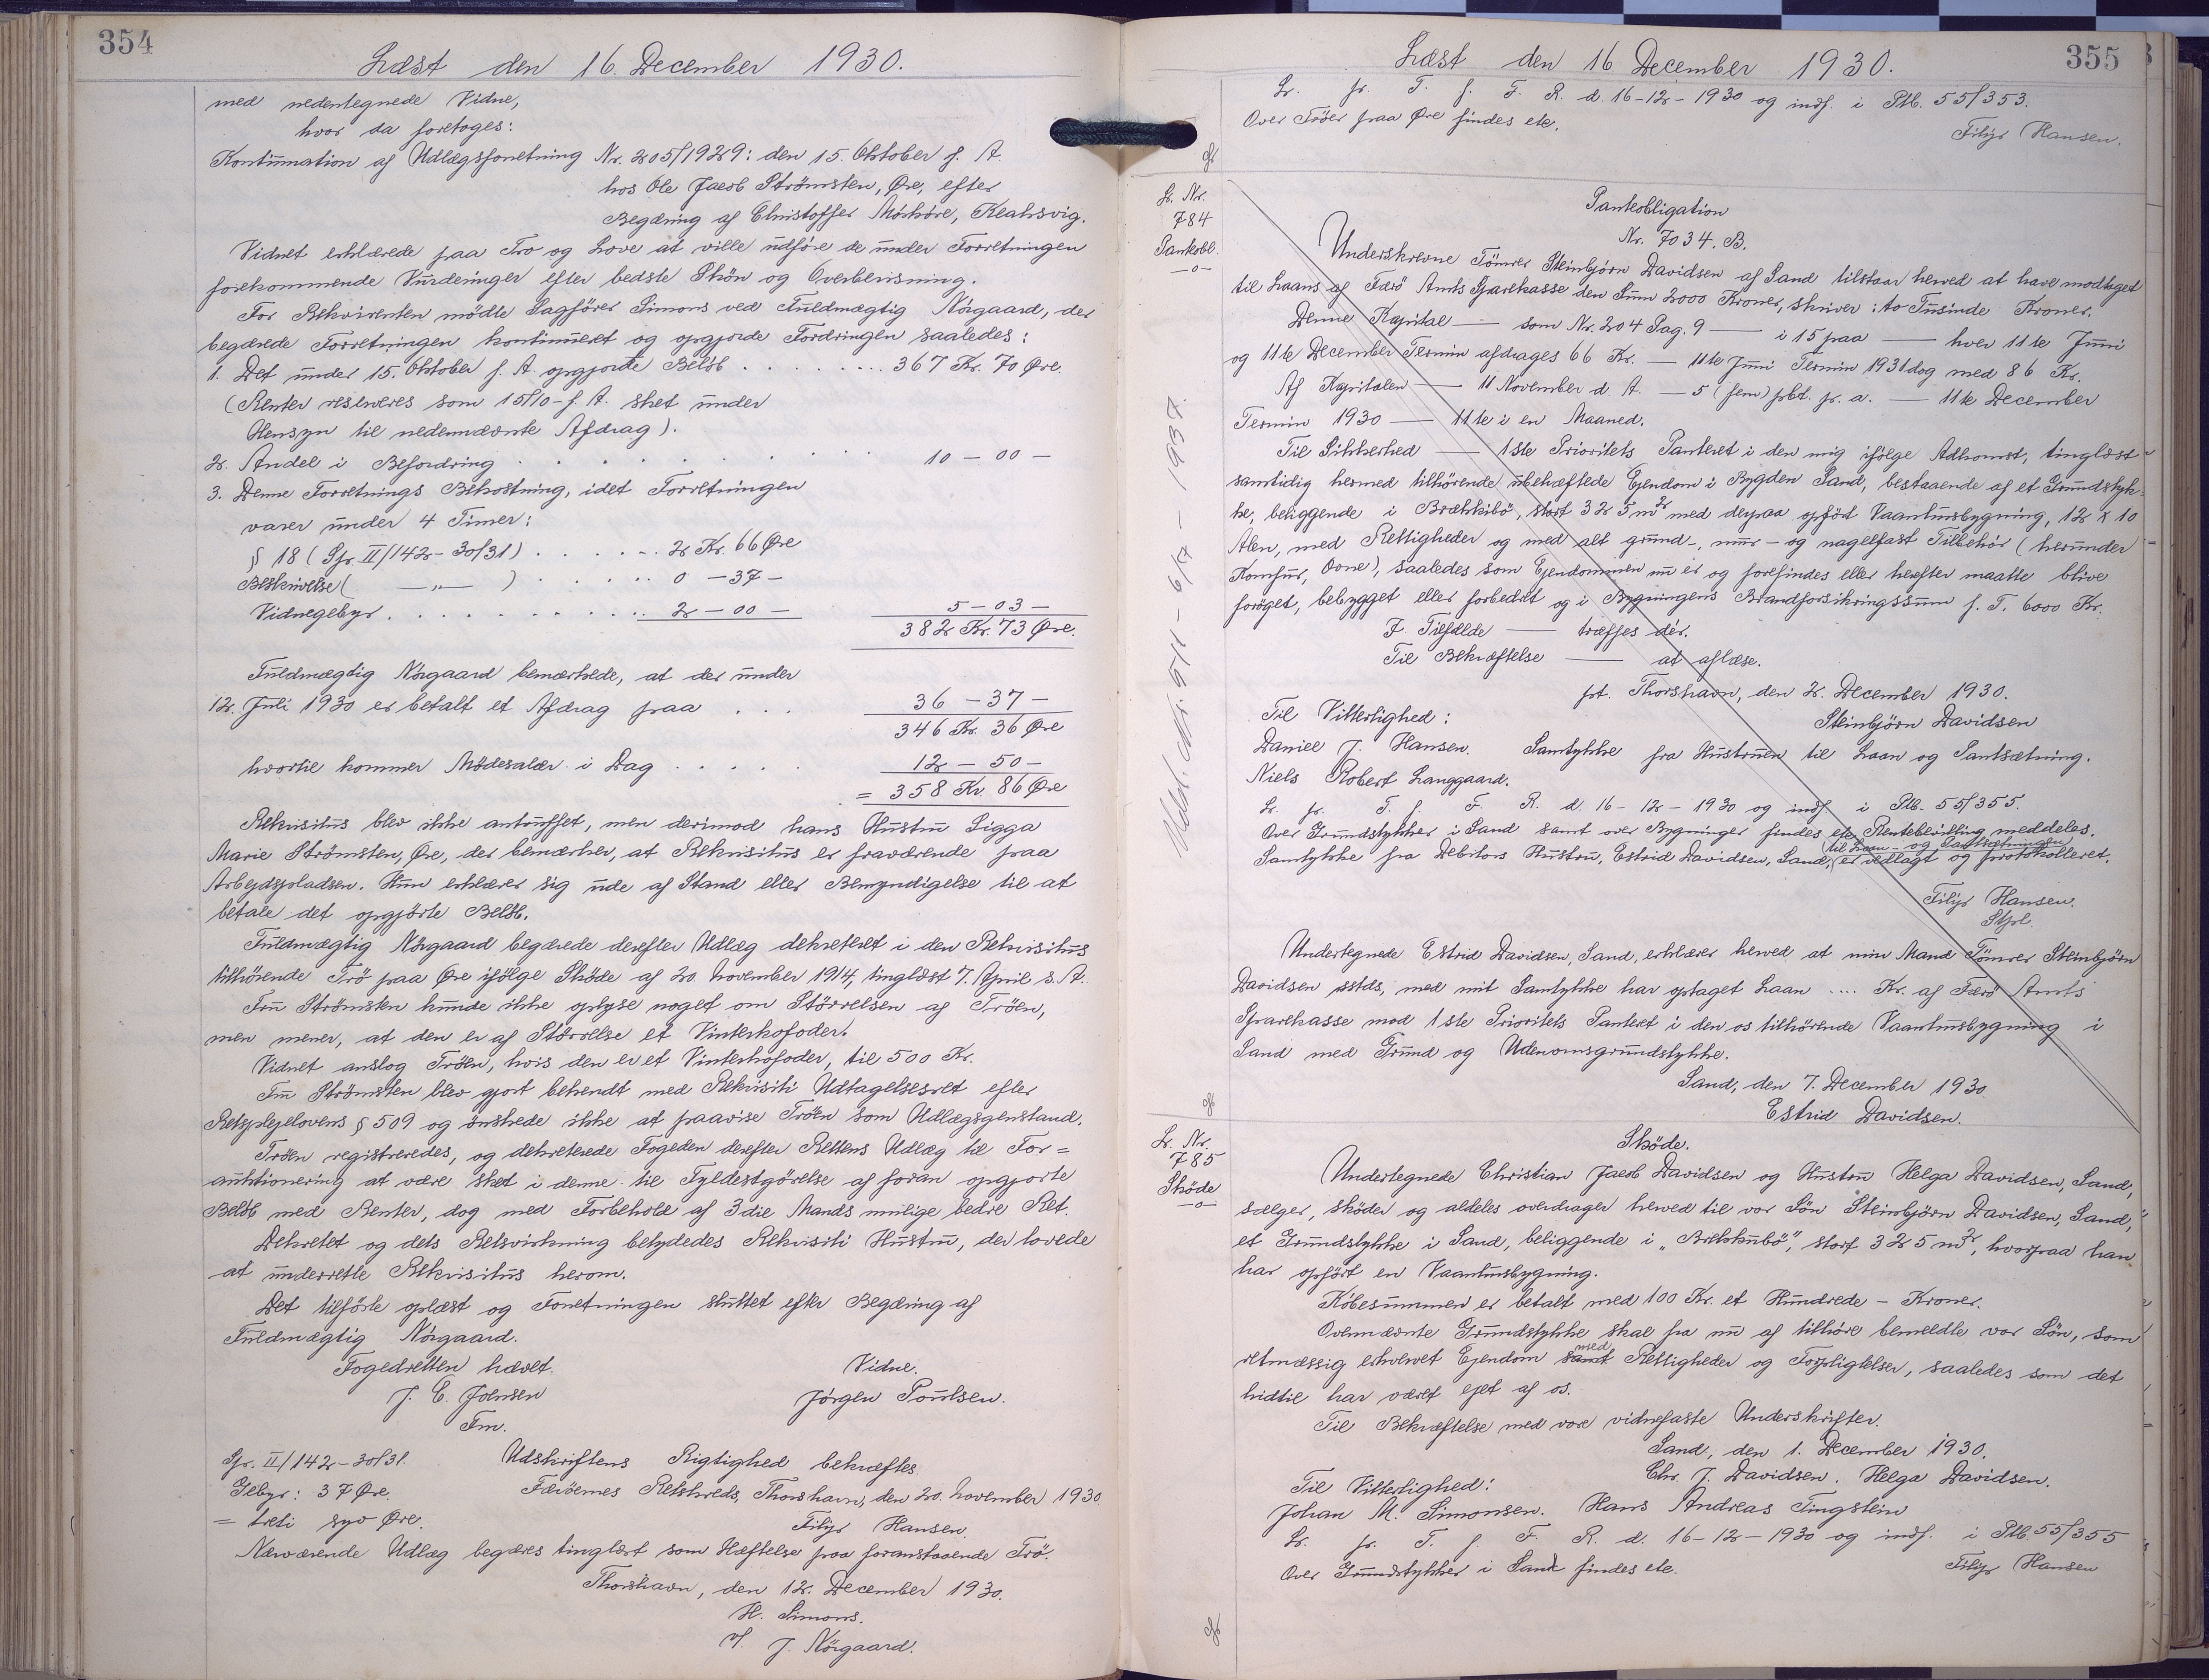 354
Læst den 16. December 1930.
med nedentegnede Vidne,
hvor da foretoges:
Kontinuation af Udlægsforretning Nr. 205/1929: den 15. Oktober f. A.
hos Ole Jacob Strömsten, Øre, efter
Begæring af Christoffer Mörköre, Kvalvsvig.
Vidnet erklærede paa Tro og Love at ville udföre de under Forretningen
forekommende Vurderinger efter bedste Skön og Overbevisning.
For Rekvirenten mödte Sagförer Simons ved Fuldmægtig Nörgaard, der
begærede Forretningen kontinueret og opgjorde Fordringen saaledes:
1. Det under 15. Oktober f. A. opgjorte Belöb . . . . . . . . 367 Kr. 70 Øre.
(Renter reserveres som 15/10- f. A. sket under
Hensyn til nedennævnte Afdrag).
2. Andel i Befordring . . . . . . . . . 10 - 00 -
3. Denne Forretnings Bekostning, idet Forretningen
varer under 4 Timer:
§ 18 (Spr. II/142-30/31) . . . . . 2 Kr. 66 Øre
Beskrivelse ( —„— ) . . . . . . 0 - 37 -
Vidnegebyr . . . . . . . . . . . . 2 - 00 - 5 - 03 -
382 Kr. 73 Øre.
Fuldmægtig Nörgaard bemærkede, at der under
12. Juli 1930 er betalt et Afdrag paa . . . 36 - 37 -
346 Kr. 36 Øre
hvortil kommer Mödesalær i Dag . . . . . 12 - 50 -
= 358 Kr. 86 Øre
Rekvisitus blev ikke antruffet, men derimod hans Hustru Sigga
Marie Strömsten, Øre, der bemærker, at Rekvisitus er fraværende paa
Arbejdspladsen. Hun erklærer sig ude af Stand eller Bemyndigelse til at
betale det opgjorte Belöb.
Fuldmægtig Nörgaard begærede derefter Udlæg dekreteret i den Rekvisitus
tilhörende Trö paa Øre ifölge Sköde af 20. November 1914, tinglæst 7. April s. A.
Fru Strömsten kunde ikke oplyse noget om Störrelsen af Tröen,
men mener, at den er af Störrelse et Vinterkofoder.
Vidnet anslog Tröen, hvis den er et Vinterkofoder, til 500 Kr.
Fru Strömsten blev gjort bekendt med Rekvisiti Udtagelsesret efter
Retsplejelovens § 509 og önskede ikke at paavise Tröen som Udlægsgenstand.
Tröen registreredes, og dekreterede Fogeden derefter Rettens Udlæg til For=
auktionering at være sket i denne til Fyldestgörelse af foran opgjorte
Belöb med Renter, dog med Forbehold af 3die Mands mulige bedre Ret.
Dekretet og dets Retsvirkning betydedes Rekvisiti Hustru, der lovede
at underrette Rekvisitus herom.
Det tilförte oplæst og Forretningen sluttet efter Begæring af
Fuldmægtig Nörgaard.
Fogedretten hævet. Vidne.
J. C. Joensen Jörgen Poulsen.
Fm.
Spr. II/142-30/31. Udskriftens Rigtighed bekræftes.
Gebyr: 37 Øre. Færöernes Retskreds, Thorshavn, den 20. November 1930.
= treti syv Øre. Filip Hansen.
Nærværende Udlæg begæres tinglæst som Hæftelse paa foranstaaende Trö.
Thorshavn, den 12. December 1930.
H. Simons.
v/ J. Nörgaard.
355
Læst den 16 December 1930.
L. fr. T. f. F. R. d. 16-12-1930 og indf. i Ptb. 55/353.
Over Tröer paa Øre findes etc.
Filip Hansen.
L. Nr.
784
Pantobl.
—o—
Pantobligation
Nr. 7034. B.
Underskrevne Tömrer Steinbjörn Davidsen af Sand tilstaar herved at have modtaget
til Laans af Færö Amts Sparekasse den Sum 2000 Kroner, skriver: to Tusinde Kroner.
Denne Kapital — som Nr. 204 Pag. 9 — i 15 paa — hver 11te Juni
og 11te December Termin afdrages 66 Kr. — 11te Juni Termin 1931 dog med 86 Kr.
Af Kapitalen — 11 November d. A. — 5 (fem) pCt. pr. a. — 11te December
Termin 1930 — 11te i en Maaned.
Til Sikkerhed — 1ste Prioritets Panteret i den mig ifölge Adkomst, tinglæst
samtidig hermed tilhörende ubehæftede Ejendom i Bygden Sand, bestaaende af et Grundstyk-
ke, beliggende i Brækkibö, stort 325 m² med derpaa opfört Vaaningsbygning, 12 x 10
Alen, med Rettigheder og med alt grund-, mur- og nagelfast Tilbehör (herunder
Komfur, Ovne), saaledes som Ejendommen nu er og forefindes eller herefter maatte blive
foröget, bebygget eller forbedret og i Bygningens Brandforsikringssum f. T. 6000 Kr.
I Tilfælde — træffes dér.
Til Bekræftelse — at aflæse.
pt. Thorshavn, den 2. December 1930.
Til Vitterlighed: Steinbjörn Davidsen
Daniel J. Hansen. Samtykke fra Hustruen til Laan og Pantsætning.
Niels Robert Langgaard.
L. fr. T. f. F. R. d. 16-12-1930 og indf. i Ptb. 55/355.
Over Grundstykker i Sand samt over Bygninger findes etc. Rentebevilling meddeles.
til Laan- og Pantsætningen
Samtykke fra Debitors Hustru, Estrid Davidsen, Sand, er vedlagt og protokolleret.
Filip Hansen.
Stpl.
Udsl. d. 5/1 - 6/2 - 1932.
Undertegnede Estrid Davidsen, Sand, erklærer herved at min Mand Tömrer Steinbjörn
Davidsen sstds, med mit Samtykke har optaget Laan .... Kr. af Færö Amts
Sparekasse mod 1ste Prioritets Panteret i den os tilhörende Vaaningsbygning i
Sand med Grund og Udenomsgrundstykke.
Sand, den 7. December 1930.
Estrid Davidsen.
L. Nr.
785
Sköde
—o—
Sköde.
Undertegnede Christian Jacob Davidsen og Hustru Helga Davidsen, Sand,
sælger, sköder og aldeles overdrager herved til vor Sön Steinbjörn Davidsen, Sand,
et Grundstykke i Sand, beliggende i „Brekkubö", stort 325 m², hvorpaa han
har opfört en Vaaningsbygning.
Köbesummen er betalt med 100 Kr. et Hundrede - Kroner.
Ovennævnte Grundstykke skal fra nu af tilhöre bemeldte vor Sön, som
retmæssig erhvervet Ejendom samt med Rettigheder og Forpligtelser, saaledes som det
hidtil har været ejet af os.
Til Bekræftelse med vore vidnefaste Underskrifter.
Sand, den 1. December 1930.
Til Vitterlighed: Chr. J. Davidsen. Helga Davidsen.
Johan M. Simonsen. Hans Andreas Tingstein
L. fr. T. f. F. R. d. 16-12-1930 og indf. i Ptb 55/355
Over Grundstykker i Sand findes etc. Filip Hansen